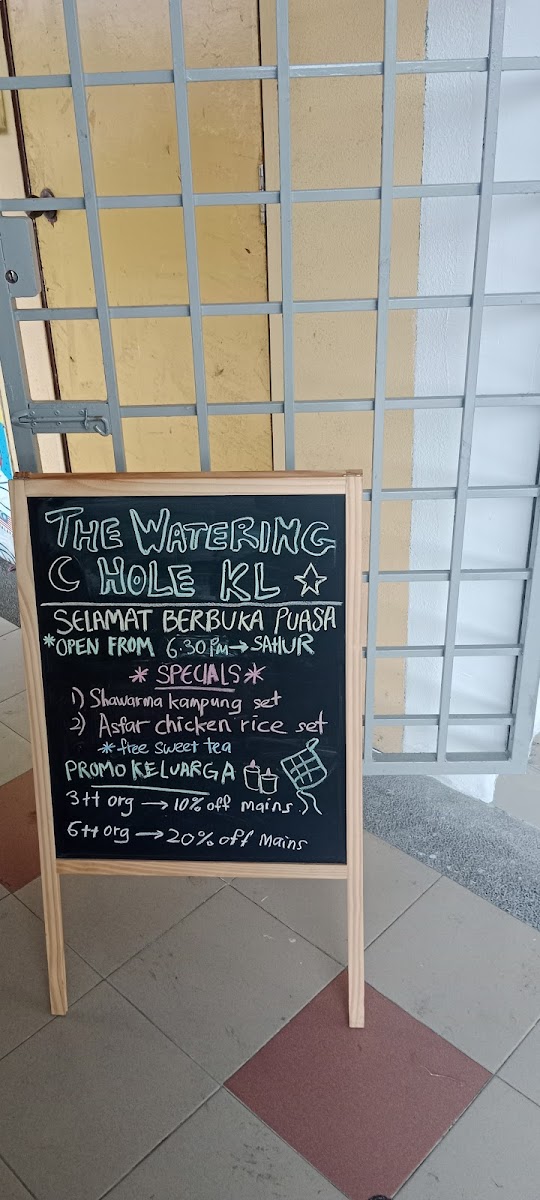 THE WATERING
HOLE KL
SELAMAT BERBUKA PUASA
*OPEN FROM 6.30 PM → SAHUR
* SPECIALS *
1) Shawarma kampung set
2) Asfar chicken rice set
* free sweet tea
PROMO KELUARGA
3++ org → 10% off mains
6++ org → 20% off Mains